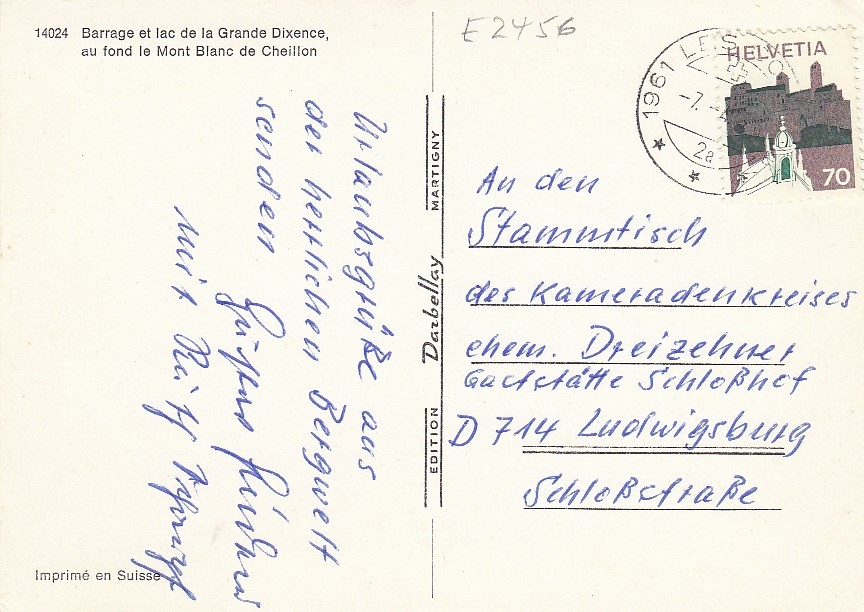 14024 Barrage et lac de la Grande Dixence,
au fond le Mont Blanc de Cheillon
E2456
1961 LES
-7.
2a
HELVETIA
70
Urlaubsgrüße aus
der herrlichen Bergwelt
senden
mit
EDITION Darbellay MARTIGNY
An den
Stammtisch
des Kameradenkreises
ehem. Dreizehner
Gaststätte Schloßhof
D 714 Ludwigsburg
Schloßstraße
Imprimé en Suisse